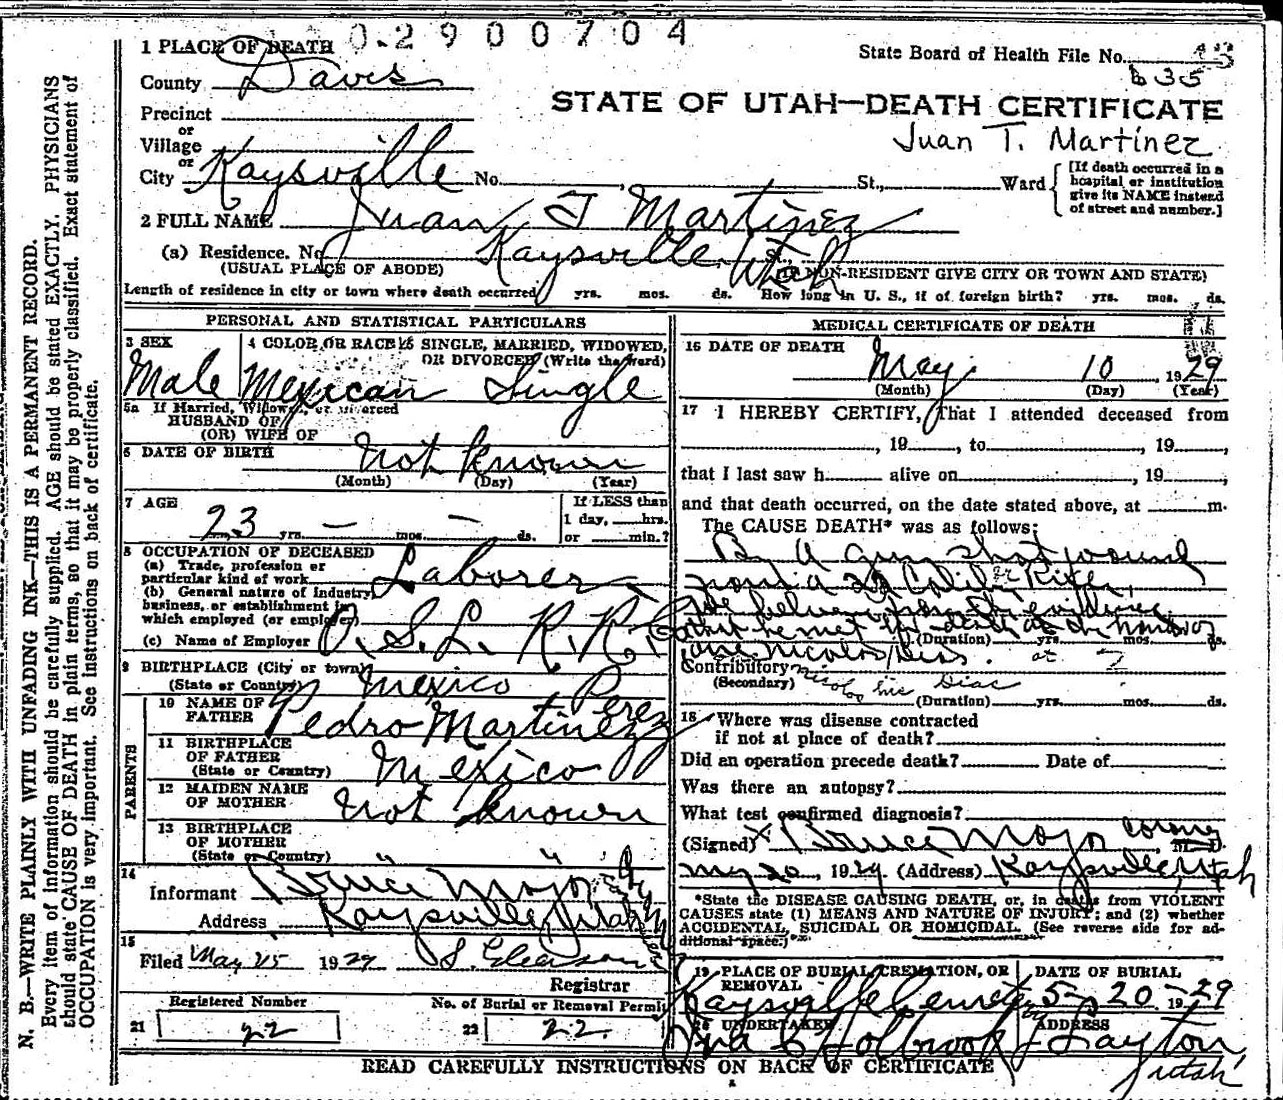 0.2900704
1 PLACE OF DEATH
State Board of Health File No. 43
635
County Davis
STATE OF UTAH—DEATH CERTIFICATE
Precinct
or
Juan T. Martinez
Village
or
City Kaysville No. , St., Ward
[If death occurred in a
hospital or institution
give its NAME instead
of street and number.]
2 FULL NAME Juan T Martinez
(a) Residence. No. Kaysville, Utah St.,
(USUAL PLACE OF ABODE) (IF NON-RESIDENT GIVE CITY OR TOWN AND STATE)
Length of residence in city or town where death occurred yrs. mos. ds. How long in U. S., if of foreign birth? yrs. mos. ds.
PERSONAL AND STATISTICAL PARTICULARS
3 SEX
4 COLOR OR RACE
5 SINGLE, MARRIED, WIDOWED,
OR DIVORCED (Write the word)
Male Mexican Single
5a If Married, Widowed, or Divorced
HUSBAND OF
(OR) WIFE OF
6 DATE OF BIRTH not known
(Month) (Day) (Year)
7 AGE
23 yrs. — mos. — ds.
If LESS than
1 day, hrs.
or min.?
8 OCCUPATION OF DECEASED
(a) Trade, profession or
particular kind of work Laborer
(b) General nature of industry,
business, or establishment in
which employed (or employer)
(c) Name of Employer O.S.L. R.R. Co
9 BIRTHPLACE (City or town)
(State or Country) Mexico
10 NAME OF
FATHER Pedro Martinez Perez
11 BIRTHPLACE
OF FATHER
(State or Country) Mexico
12 MAIDEN NAME
OF MOTHER not known
13 BIRTHPLACE
OF MOTHER
(State or Country) " "
PARENTS
14
Informant Bruce Mojo
Address Kaysville, Utah
15
Filed May 25 1929 S. Gleason
Registrar
Registered Number
21 22
No. of Burial or Removal Permit
22 22.
MEDICAL CERTIFICATE OF DEATH
16 DATE OF DEATH
May 10, 1929
(Month) (Day) (Year)
17 I HEREBY CERTIFY, That I attended deceased from
, 19 , to , 19 ,
that I last saw h alive on , 19 ,
and that death occurred, on the date stated above, at m.
The CAUSE DEATH* was as follows:
By a gun shot wound
from a 22 Calibre Rifle,
believe from the evidence
that he met his death at the hands of
one Nicolas Dias.
(Duration) yrs. mos. ds.
Contributory
(Secondary)
(Duration) yrs. mos. ds.
18 Where was disease contracted
if not at place of death?
Did an operation precede death? Date of
Was there an autopsy?
What test confirmed diagnosis?
(Signed) X Bruce Mojo Coroner, M. D.
May 20, 1929 (Address) Kaysville, Utah
*State the DISEASE CAUSING DEATH, or, in deaths from VIOLENT
CAUSES state (1) MEANS AND NATURE OF INJURY; and (2) whether
ACCIDENTAL, SUICIDAL OR HOMICIDAL. (See reverse side for ad-
ditional space.)
19 PLACE OF BURIAL, CREMATION, OR
REMOVAL
Kaysville Cemetery
DATE OF BURIAL
5-20-1929
20 UNDERTAKER
Ira C Holbrook
ADDRESS
Layton,
Utah
READ CAREFULLY INSTRUCTIONS ON BACK OF CERTIFICATE
N. B.—WRITE PLAINLY WITH UNFADING INK—THIS IS A PERMANENT RECORD.
Every item of information should be carefully supplied. AGE should be stated EXACTLY. PHYSICIANS
should state CAUSE OF DEATH in plain terms, so that it may be properly classified. Exact statement of
OCCUPATION is very important. See instructions on back of certificate.